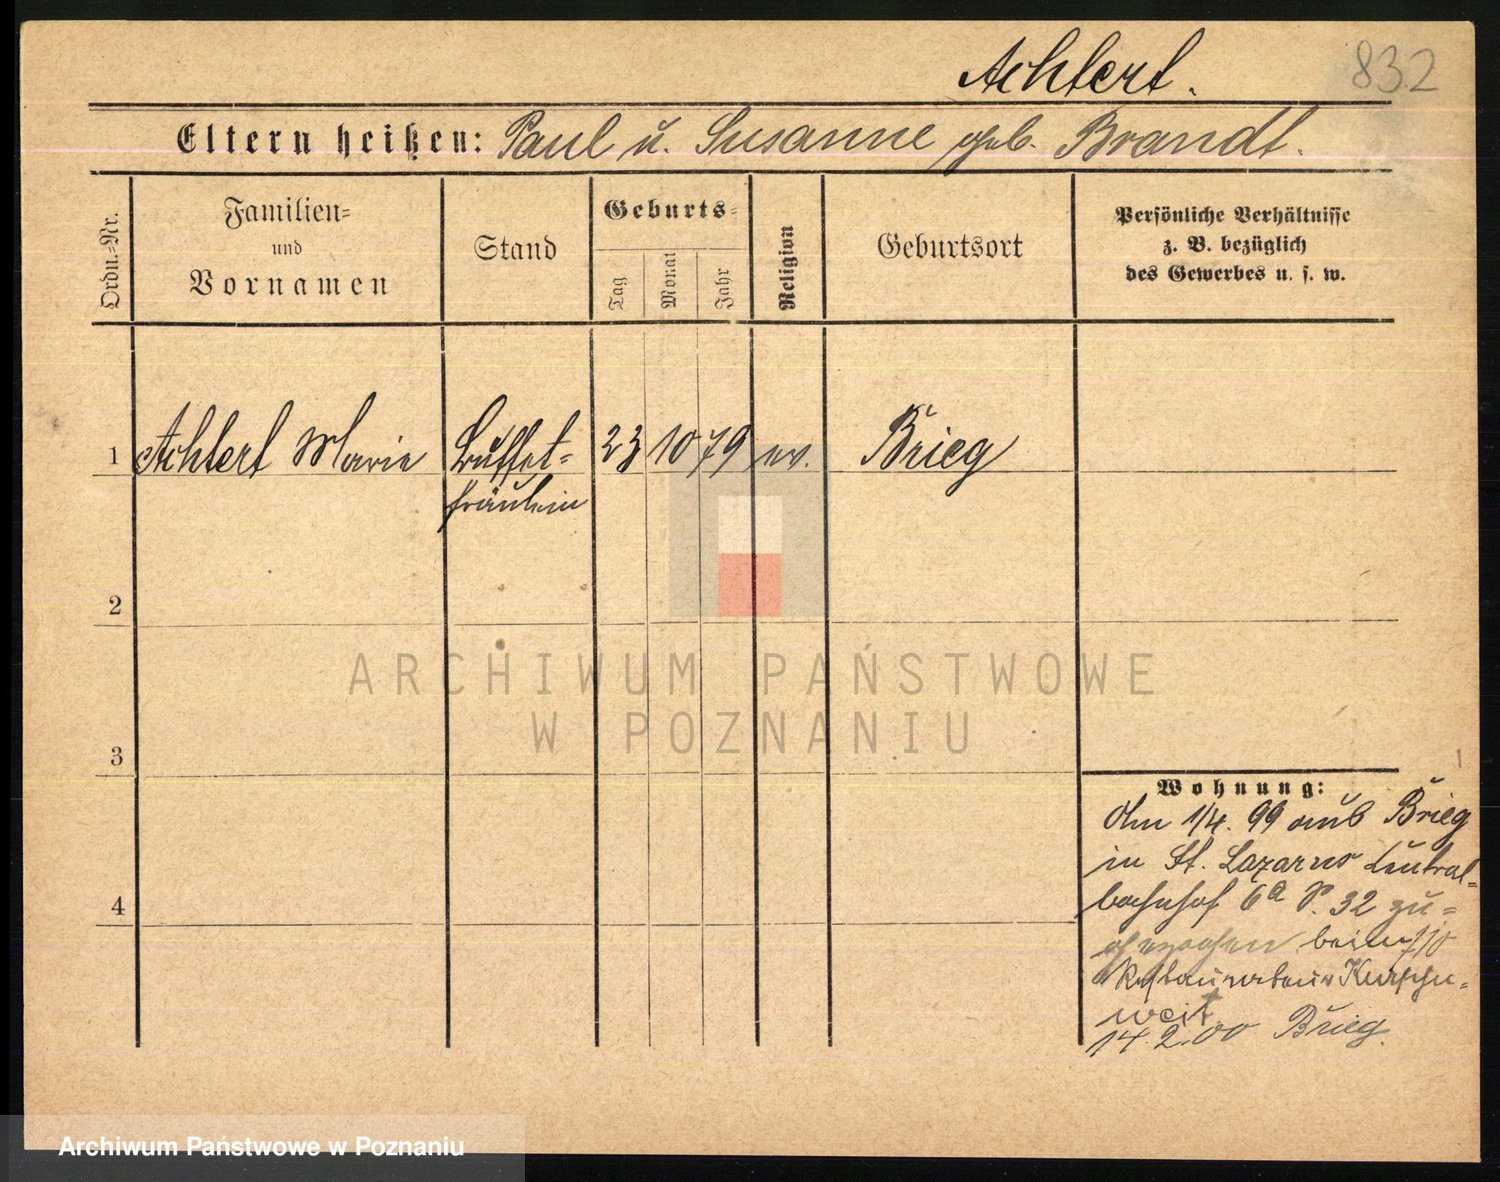 Achtert.
832
Eltern heißen: Paul u. Susanne geb. Brandt.
Ordn.-Nr.
Familien-
und
Vornamen
Stand
Geburts-
Tag
Monat
Jahr
Religion
Geburtsort
Persönliche Verhältnisse
z. B. bezüglich
des Gewerbes u. s. w.
1 Achtert Marie Buffet- 23 10 79 ev. Brieg
fräulein
2
3
4
Wohnung:
Am 1/4. 99 aus Brieg
in St. Lazarus Central-
bahnhof 6a P. 32 zu-
gezogen beim
Restaurateur
weit
14.2.00 Brieg.
ARCHIWUM PAŃSTWOWE
W POZNANIU
Archiwum Państwowe w Poznaniu